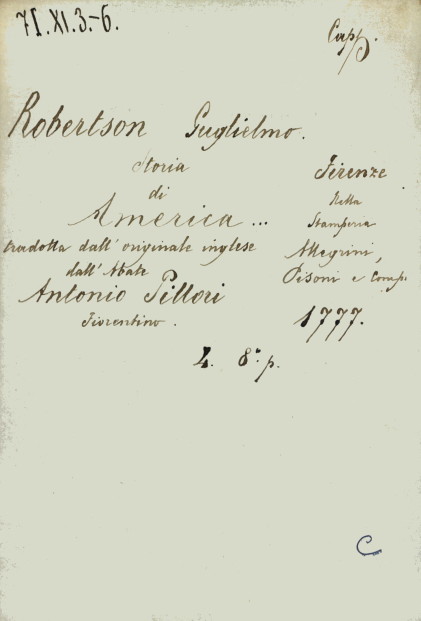 71.XI.3-6.
Capp.
Robertson Guglielmo.
Storia
di
America...
tradotta dall'originale inglese
dall'Abate
Antonio Pillori
Fiorentino.
Firenze
Nella
Stamperia
Allegrini,
Pisoni e Comp.
1777.
4. 8.° p.
C